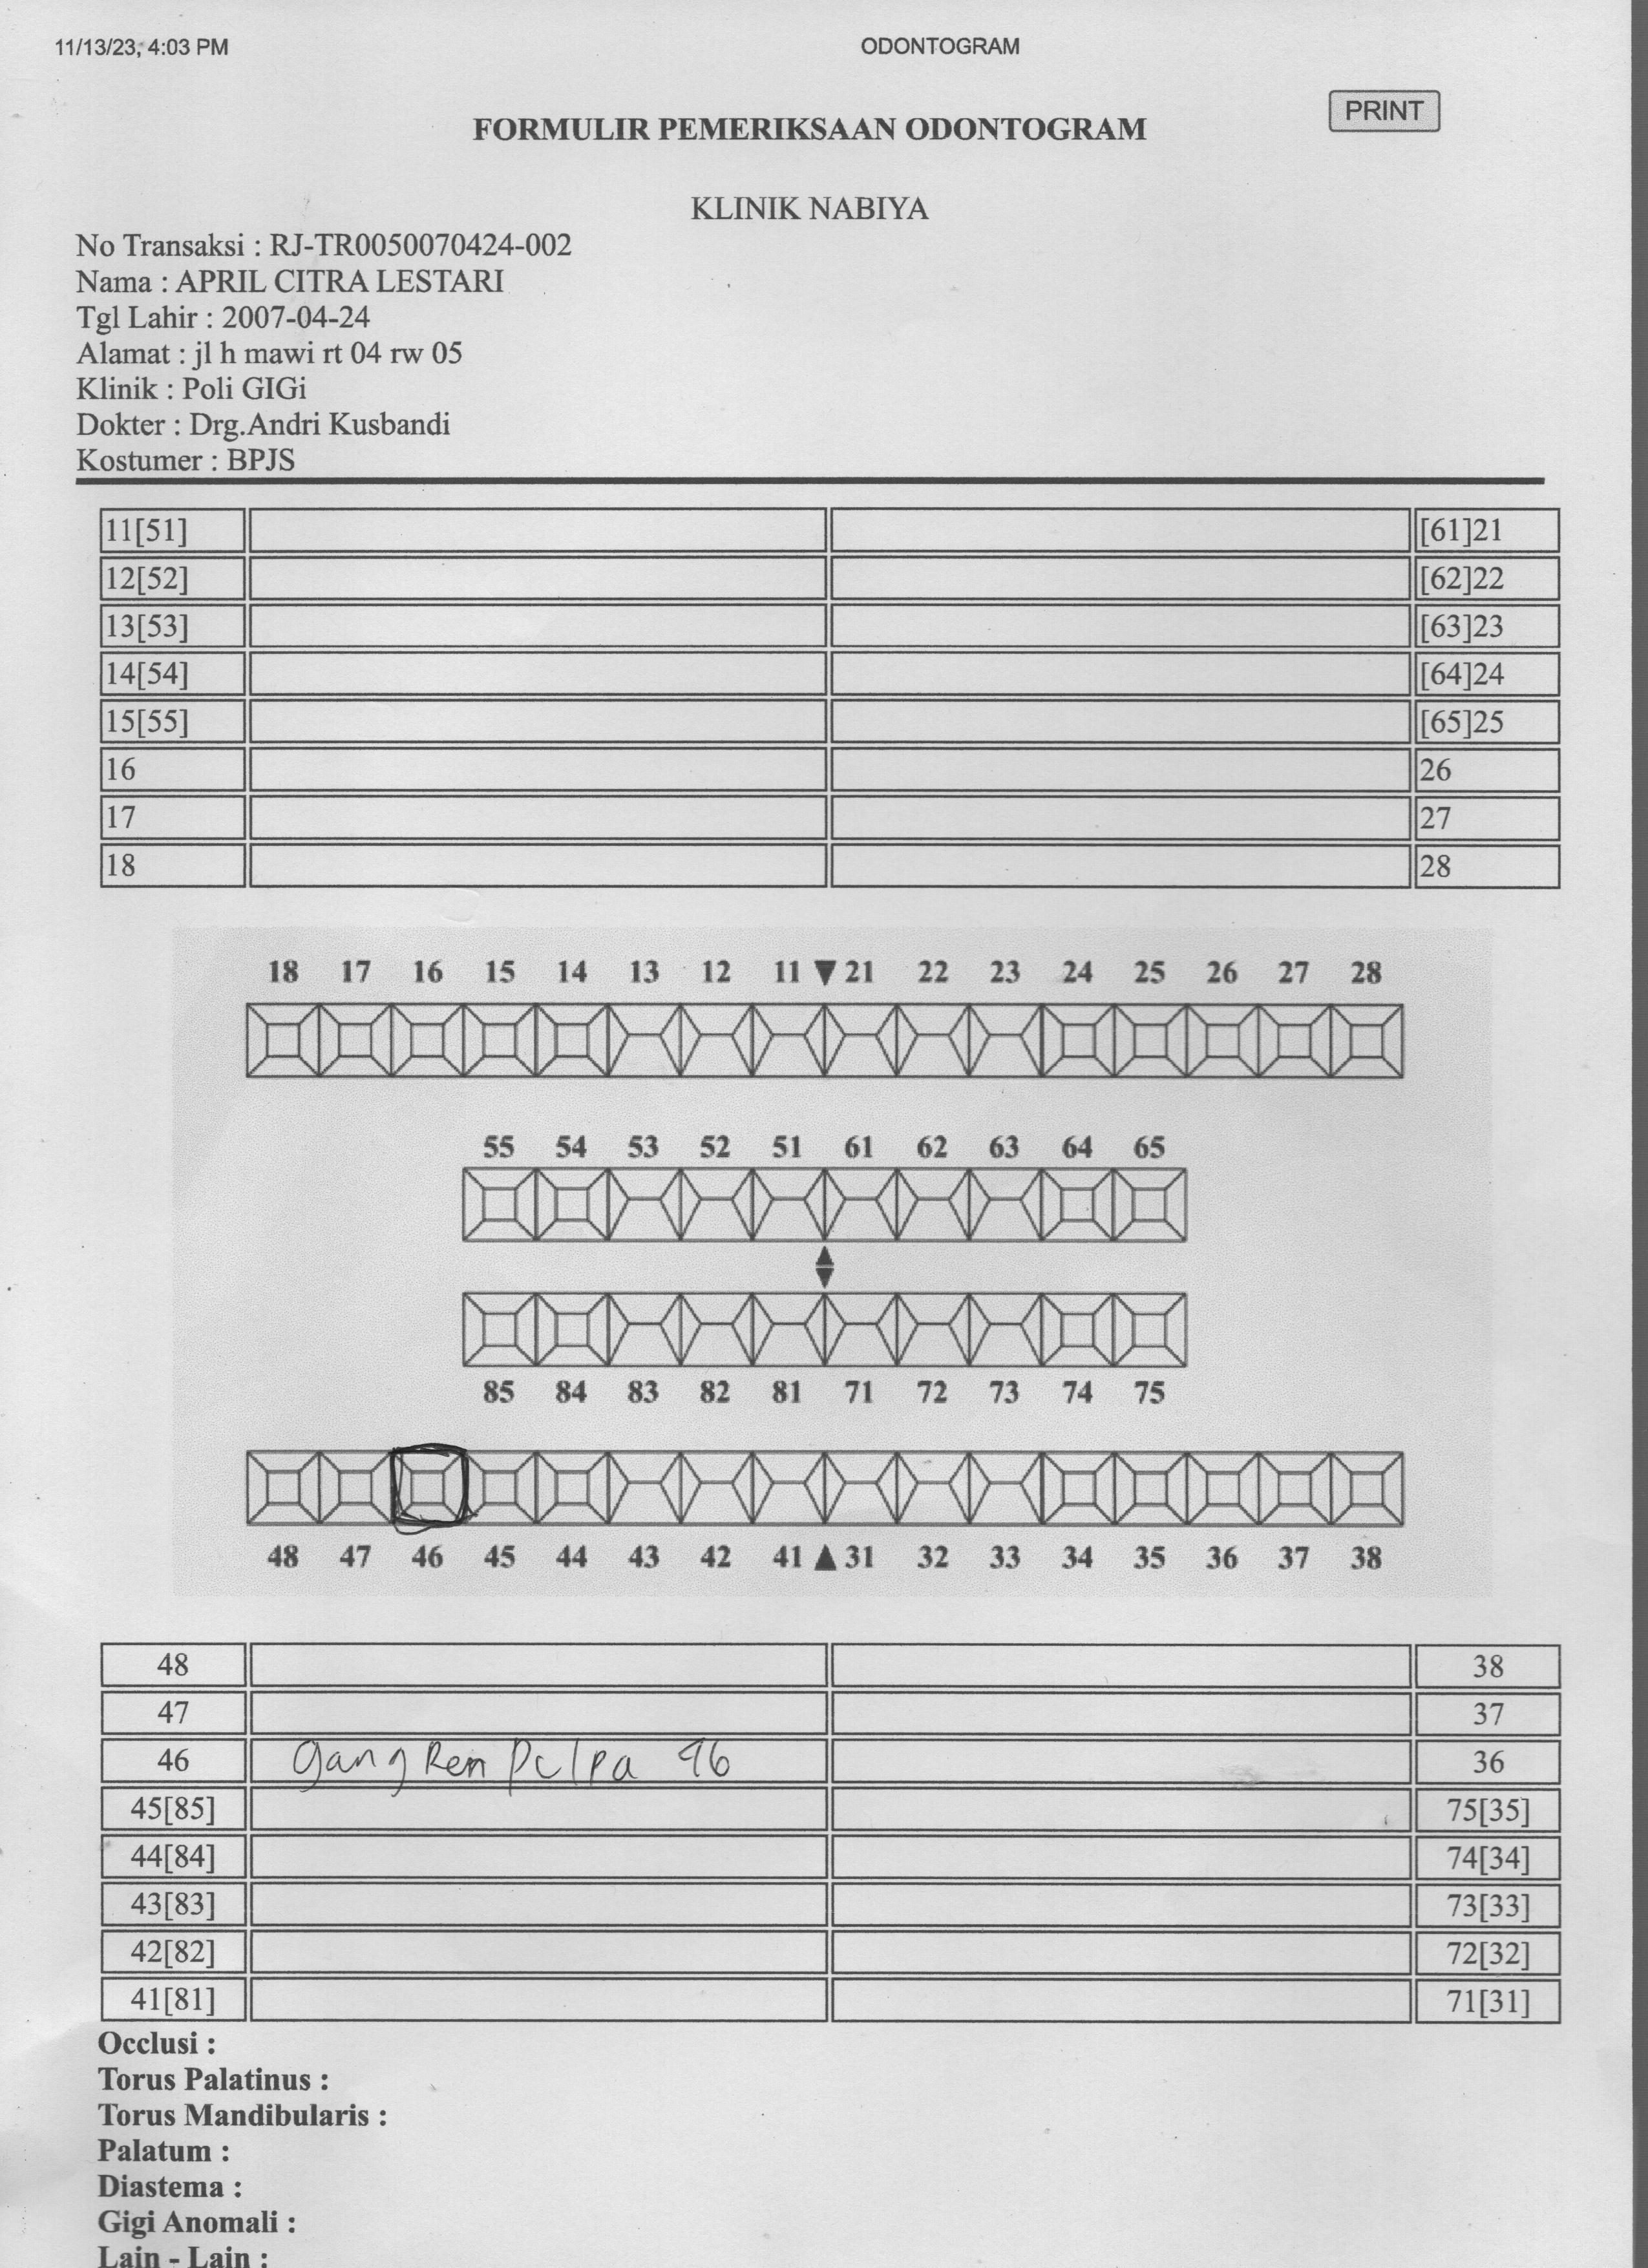 11/13/23, 4:03 PM ODONTOGRAM
PRINT
FORMULIR PEMERIKSAAN ODONTOGRAM
KLINIK NABIYA
No Transaksi : RJ-TR0050070424-002
Nama : APRIL CITRA LESTARI
Tgl Lahir : 2007-04-24
Alamat : jl h mawi rt 04 rw 05
Klinik : Poli GIGi
Dokter : Drg.Andri Kusbandi
Kostumer : BPJS
11[51] [61]21
12[52] [62]22
13[53] [63]23
14[54] [64]24
15[55] [65]25
16 26
17 27
18 28
18 17 16 15 14 13 12 11 21 22 23 24 25 26 27 28
55 54 53 52 51 61 62 63 64 65
85 84 83 82 81 71 72 73 74 75
48 47 46 45 44 43 42 41 31 32 33 34 35 36 37 38
48 38
47 37
46 Gangren pulpa 46 36
45[85] 75[35]
44[84] 74[34]
43[83] 73[33]
42[82] 72[32]
41[81] 71[31]
Occlusi :
Torus Palatinus :
Torus Mandibularis :
Palatum :
Diastema :
Gigi Anomali :
Lain - Lain :